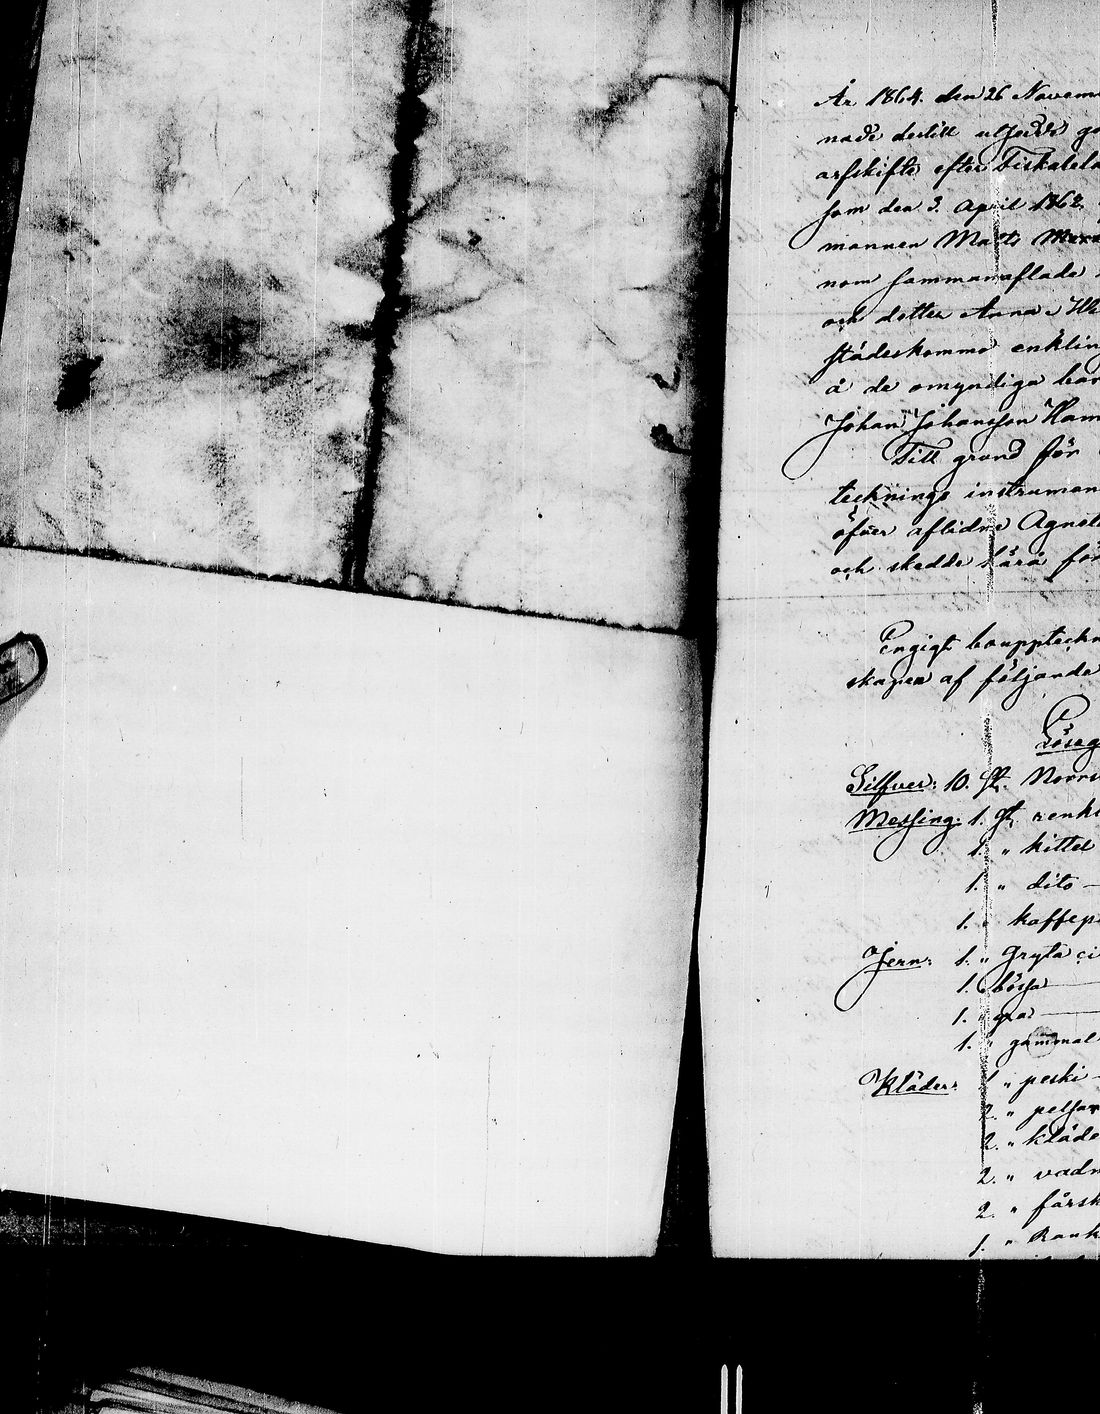 År 1864. den 26 Novem
nade dertill utsedde go
arfskifte efter Fiskalela
som den 3. April 1862
mannen Matts
nom sammanaflade
och dotter Anna
städeskomme enklin
å de omyndiga bar
Johan Johansson Ham
Till grund för
tecknings instrumen
öfver aflidne Agneta
och skedde härå för
Enligt bouppteckn
skapen af följande
Löseg
Silfver: 10. st. Norrs
Messing: 1. st. renki
1. " kittel
1. " dito —
1. " kaffepa
Jern: 1. " Gryta
1. " bössa —
1. "
1. " gammal
Kläder: 1 " peski —
2. " pelsar
2. " kläde
2. " vadm
2. " fårsk
1. "